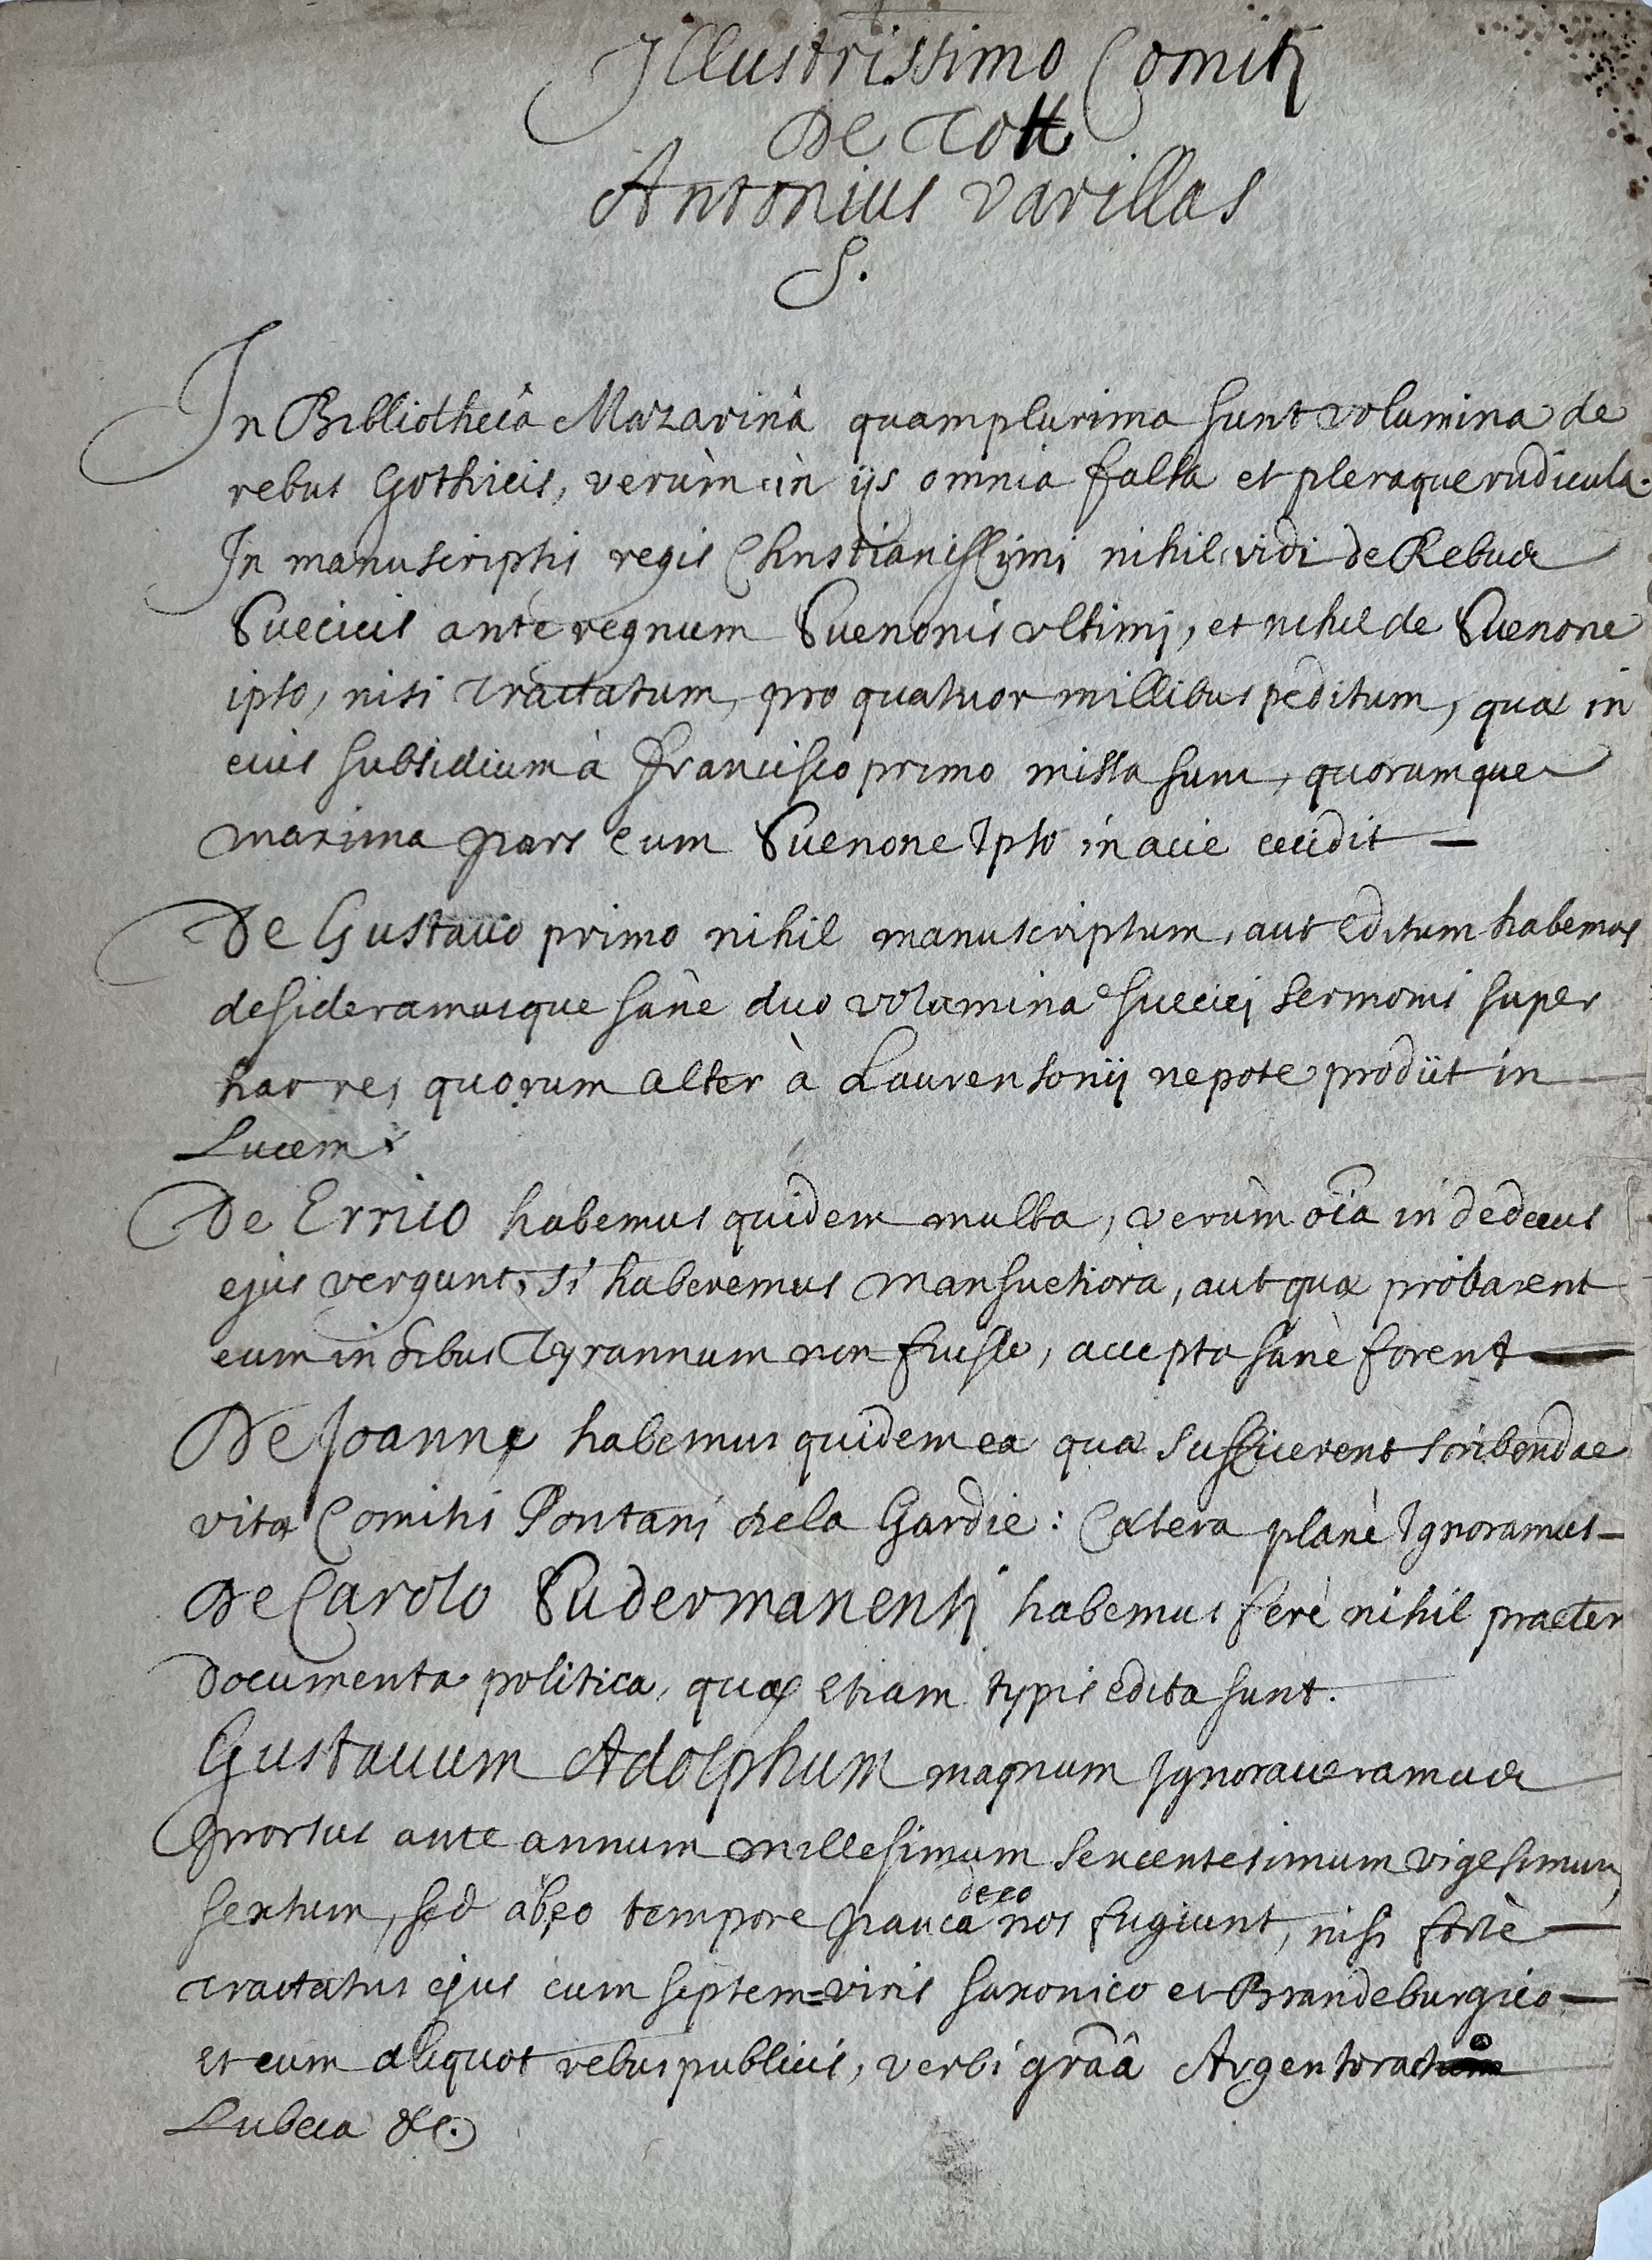 Illustrissimo Comiti
De Tott
Antonius Varillas
S.
In Bibliothecâ Mazarinâ quamplurima sunt volumina de
rebus Gothicis, verùm in ijs omnia falsa et pleraque ridicula.
In manuscriptis regis Christianissimi nihil vidi de Rebus
Suecicis ante regnum Suenonis ultimj, et nihil de Suenone
ipso, nisi Tractatum, pro quatuor millibus peditum, quæ in
eius subsidium à Francisco primo missa sunt, quorumque
maxima pars cum Suenone Ipso in acie cecidit —
De Gustavo primo nihil manuscriptum, aut editum habemus
desideramusque sanè duo volumina suecicj sermonis super
hac re, quorum alter à Laurensonij nepote prodiit in
Lucem
De Errico habemus quidem multa, verùm oîa in dedecus
ejus vergunt, si haberemus mansuetiora, aut quæ probarent
eum in sibus Tyrannum non fuisse, accepta sanè forent —
De Joanne habemus quidem ea quæ sufficerent scribendae
vitæ Comitis Pontanj de la Gardie: Cætera planè Ignoramus —
De Carolo Sudermanentj habemus ferè nihil praeter
documenta politica, quæ etiam typis edita sunt.
Gustavum Adolphum magnum Ignoraveramus
Prorsus ante annum millesimum sexcentesimum vigesimum
sextum, sed ab eo tempore pauca de eo nos fugiunt, nisi fortè —
Tractatus ejus cum septem=viris saxonico et Brandeburgico —
et cum aliquot rebuspublicis, verbi grãâ Argentorato
Lubeca &c.